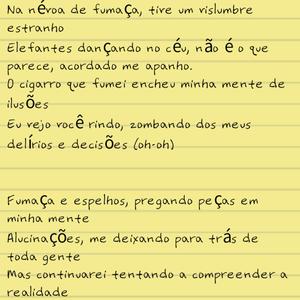 Na névoa de fumaça, tive um vislumbre
estranho
Elefantes dançando no céu, não é o que
parece, acordado me apanho.
O cigarro que fumei encheu minha mente de
ilusões
Eu vejo você rindo, zombando dos meus
delírios e decisões (oh-oh)
Fumaça e espelhos, pregando peças em
minha mente
Alucinações, me deixando para trás de
toda gente
Mas continuarei tentando a compreender a
realidade